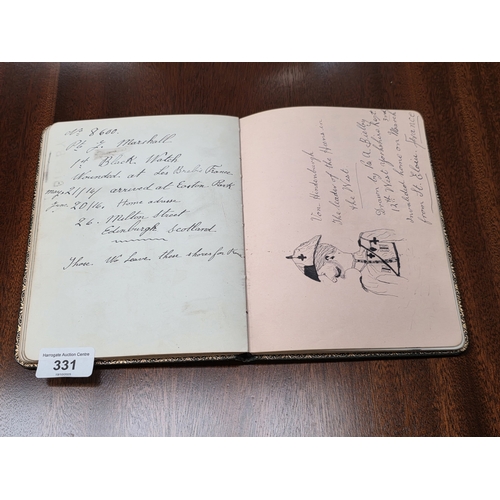 No 8600.
Pte J. Marshall.
1st Black Watch
Wounded. at Les Brebis France
may 21/16/ arrived at Easton Park
June 20/16. Home adress
26. Melton Street.
Edinburgh Scotland.
Those. We leave these shores for
Von Hindenburgh
The leader of the Huns in
the West
Drawn by A Bailey
12th West Yorkshire Regt
Invalided home on March 2nd
from St Eloi France
Harrogate Auction Centre
331